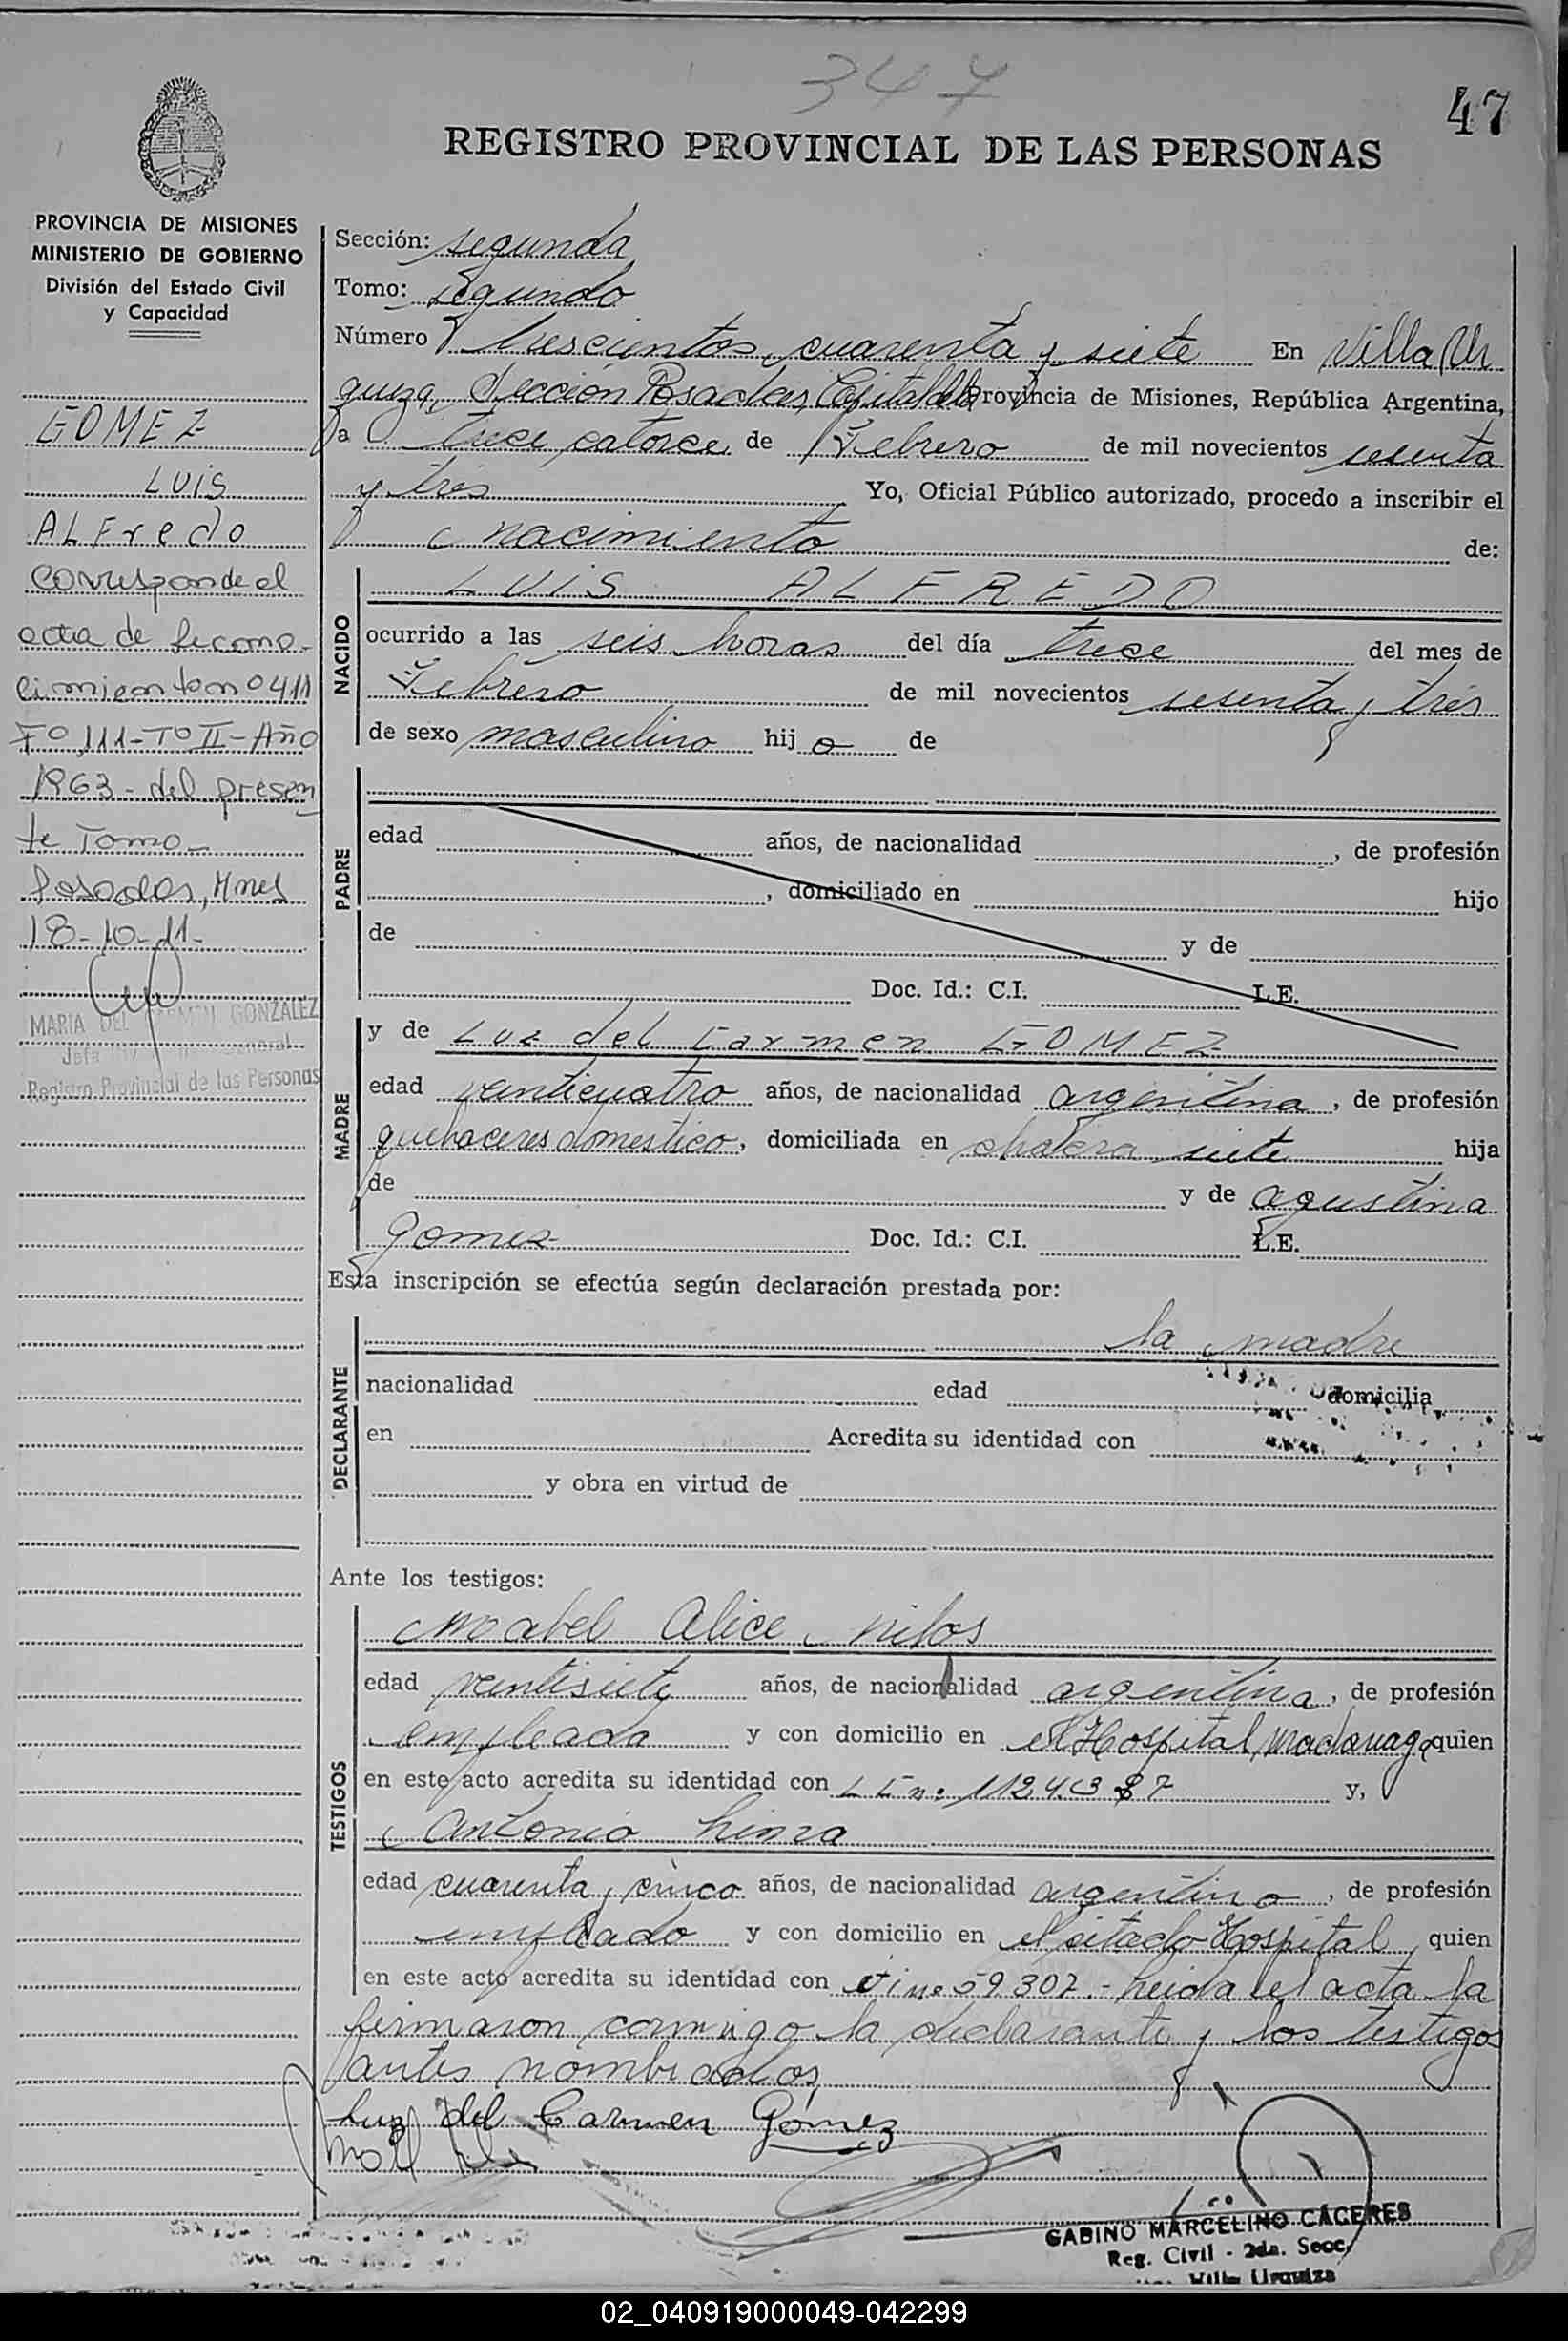 347
47
REGISTRO PROVINCIAL DE LAS PERSONAS
PROVINCIA DE MISIONES
MINISTERIO DE GOBIERNO
División del Estado Civil
y Capacidad
GOMEZ
LUIS
ALFredo
corresponde el
acta de Recono-
cimiento nº 411
Fº 111-Tº II-Año
1963- del presen
te Tomo-
Posadas, Mnes
18-10-11-
MARIA DEL CARMEN GONZALEZ
Jefe General
Registro Provincial de las Personas
Sección: segunda
Tomo: segundo
Número trescientos cuarenta y siete En Villa Ur
quiza, Sección Posadas, Capital de la Provincia de Misiones, República Argentina,
a trece catorce de Febrero de mil novecientos sesenta
y tres Yo, Oficial Público autorizado, procedo a inscribir el
nacimiento de:
NACIDO
LUIS ALFREDO
ocurrido a las seis horas del día trece del mes de
Febrero de mil novecientos sesenta y tres
de sexo masculino hijo de
PADRE
edad años, de nacionalidad , de profesión
, domiciliado en hijo
de y de
Doc. Id.: C.I. L.E.
MADRE
y de Luz del Carmen GOMEZ
edad veinticuatro años, de nacionalidad argentina, de profesión
quehaceres domestico, domiciliada en chacra siete hija
de y de agustina
Gomez Doc. Id.: C.I. L.E.
Esta inscripción se efectúa según declaración prestada por:
DECLARANTE
la madre
nacionalidad edad domicilia
en Acredita su identidad con
y obra en virtud de
Ante los testigos:
TESTIGOS
Mabel Alice
edad veintisiete años, de nacionalidad argentina, de profesión
empleada y con domicilio en el Hospital Madariaga quien
en este acto acredita su identidad con y,
Antonio
edad cuarenta y cinco años, de nacionalidad argentino, de profesión
empleado y con domicilio en el citado Hospital, quien
en este acto acredita su identidad con 59307.- Leida el acta la
firmaron conmigo la declarante y los testigos
antes nombrados,
Luz del Carmen Gómez
GABINO MARCELINO CACERES
Reg. Civil - 2da. Secc.
Villa Urquiza
02_040919000049-042299